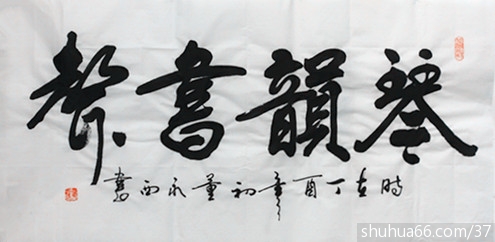 琴韻書聲
時在丁酉年初董永西書
shuhua66.com/37